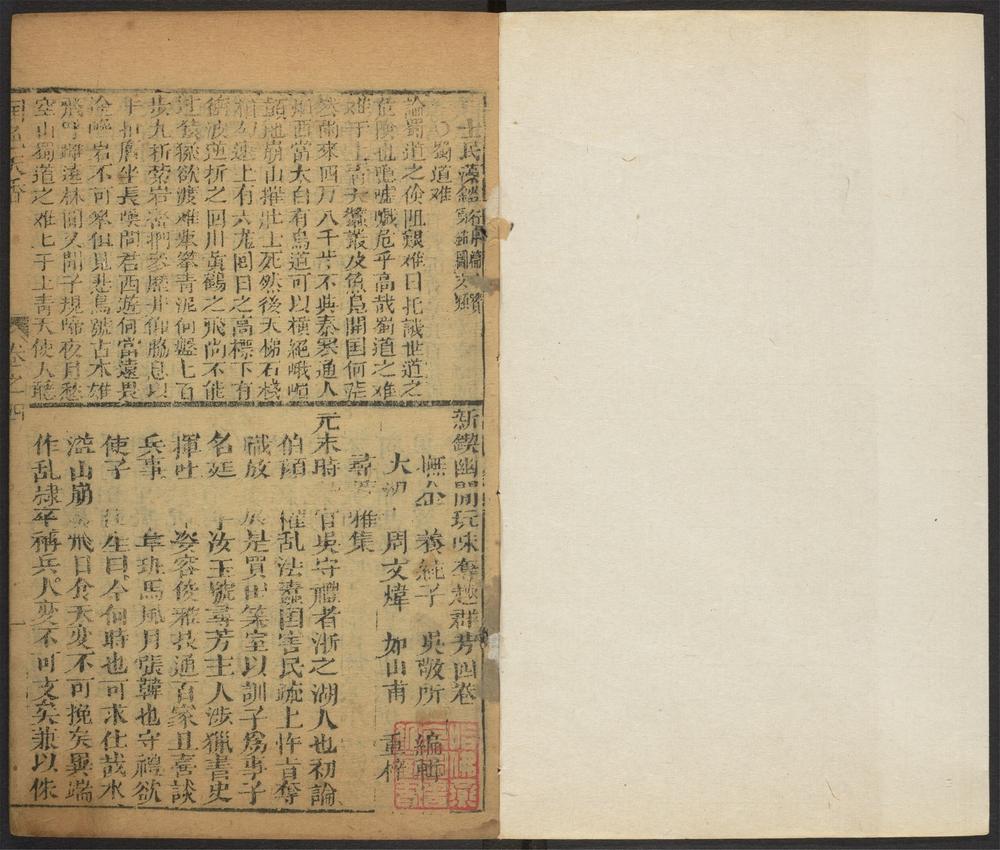 士民藻鑑
蜀道难
論蜀道之險阻艱难曰托諷世道之
危險也噫嘘嚱危乎高哉蜀道之难
难于上青天蠶叢及魚鳧開国何茫
然尔來四万八千岁不與秦塞通人
烟西當太白有鳥道可以横絕峨嵋
巔地崩山摧壯士死然後天梯石棧
相勾連上有六龙囬日之高標下有
衝波逆折之囬川黄鶴之飛尚不能
过猿猱欲渡难
攀青泥何盤盤百
步九折縈岩巒捫參歷井仰脇息以
手拊膺坐長嘆問君西遊何當還畏
途巉岩不可攀但見悲鳥號古木雄
飛呼雌遶林間又聞子規啼夜月愁
空山蜀道之难上于上青天使人聽
国色天香
卷之四
新鍥幽閒玩味奪趣群芳四卷
撫金 養純子 吳敬所 編輯
大梁 周文煒 如山甫 重梓
尋芳雅集
元末時 官吳守禮者浙之湖人也初論
伯顔 權乱法蠹国害民疏上忤旨奪
職放 是買田築室以訓子爲事子
名廷 字汝玉號尋芳主人涉獵書史
揮吐 姿容俊雅長通百家且喜談
兵事 韋班馬風月張韓也守禮欲
使子 曰今何時也可求仕哉水
溢山崩 飛日食天变不可挽矣異端
作乱隷卒稱兵人变不可支矣兼以侏